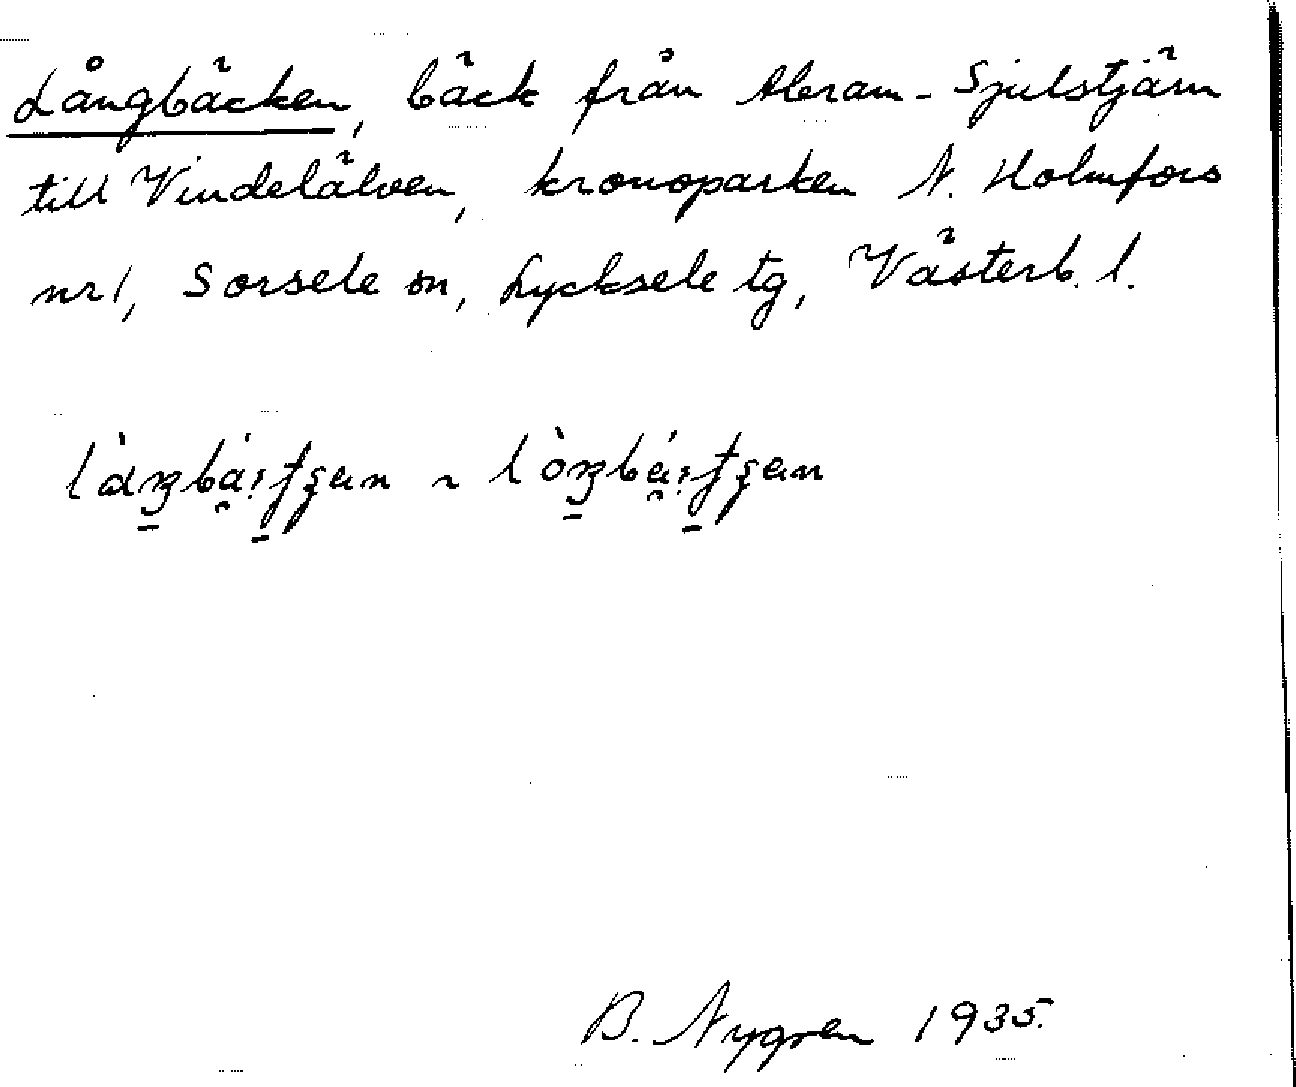 Långbäcken, bäck från Abram-Sjulstjärn
till Vindelälven, kronoparken N. Holmfors
nr 1, Sorsele sn, Lycksele tg, Västerb. l.
B. Nygren 1935.